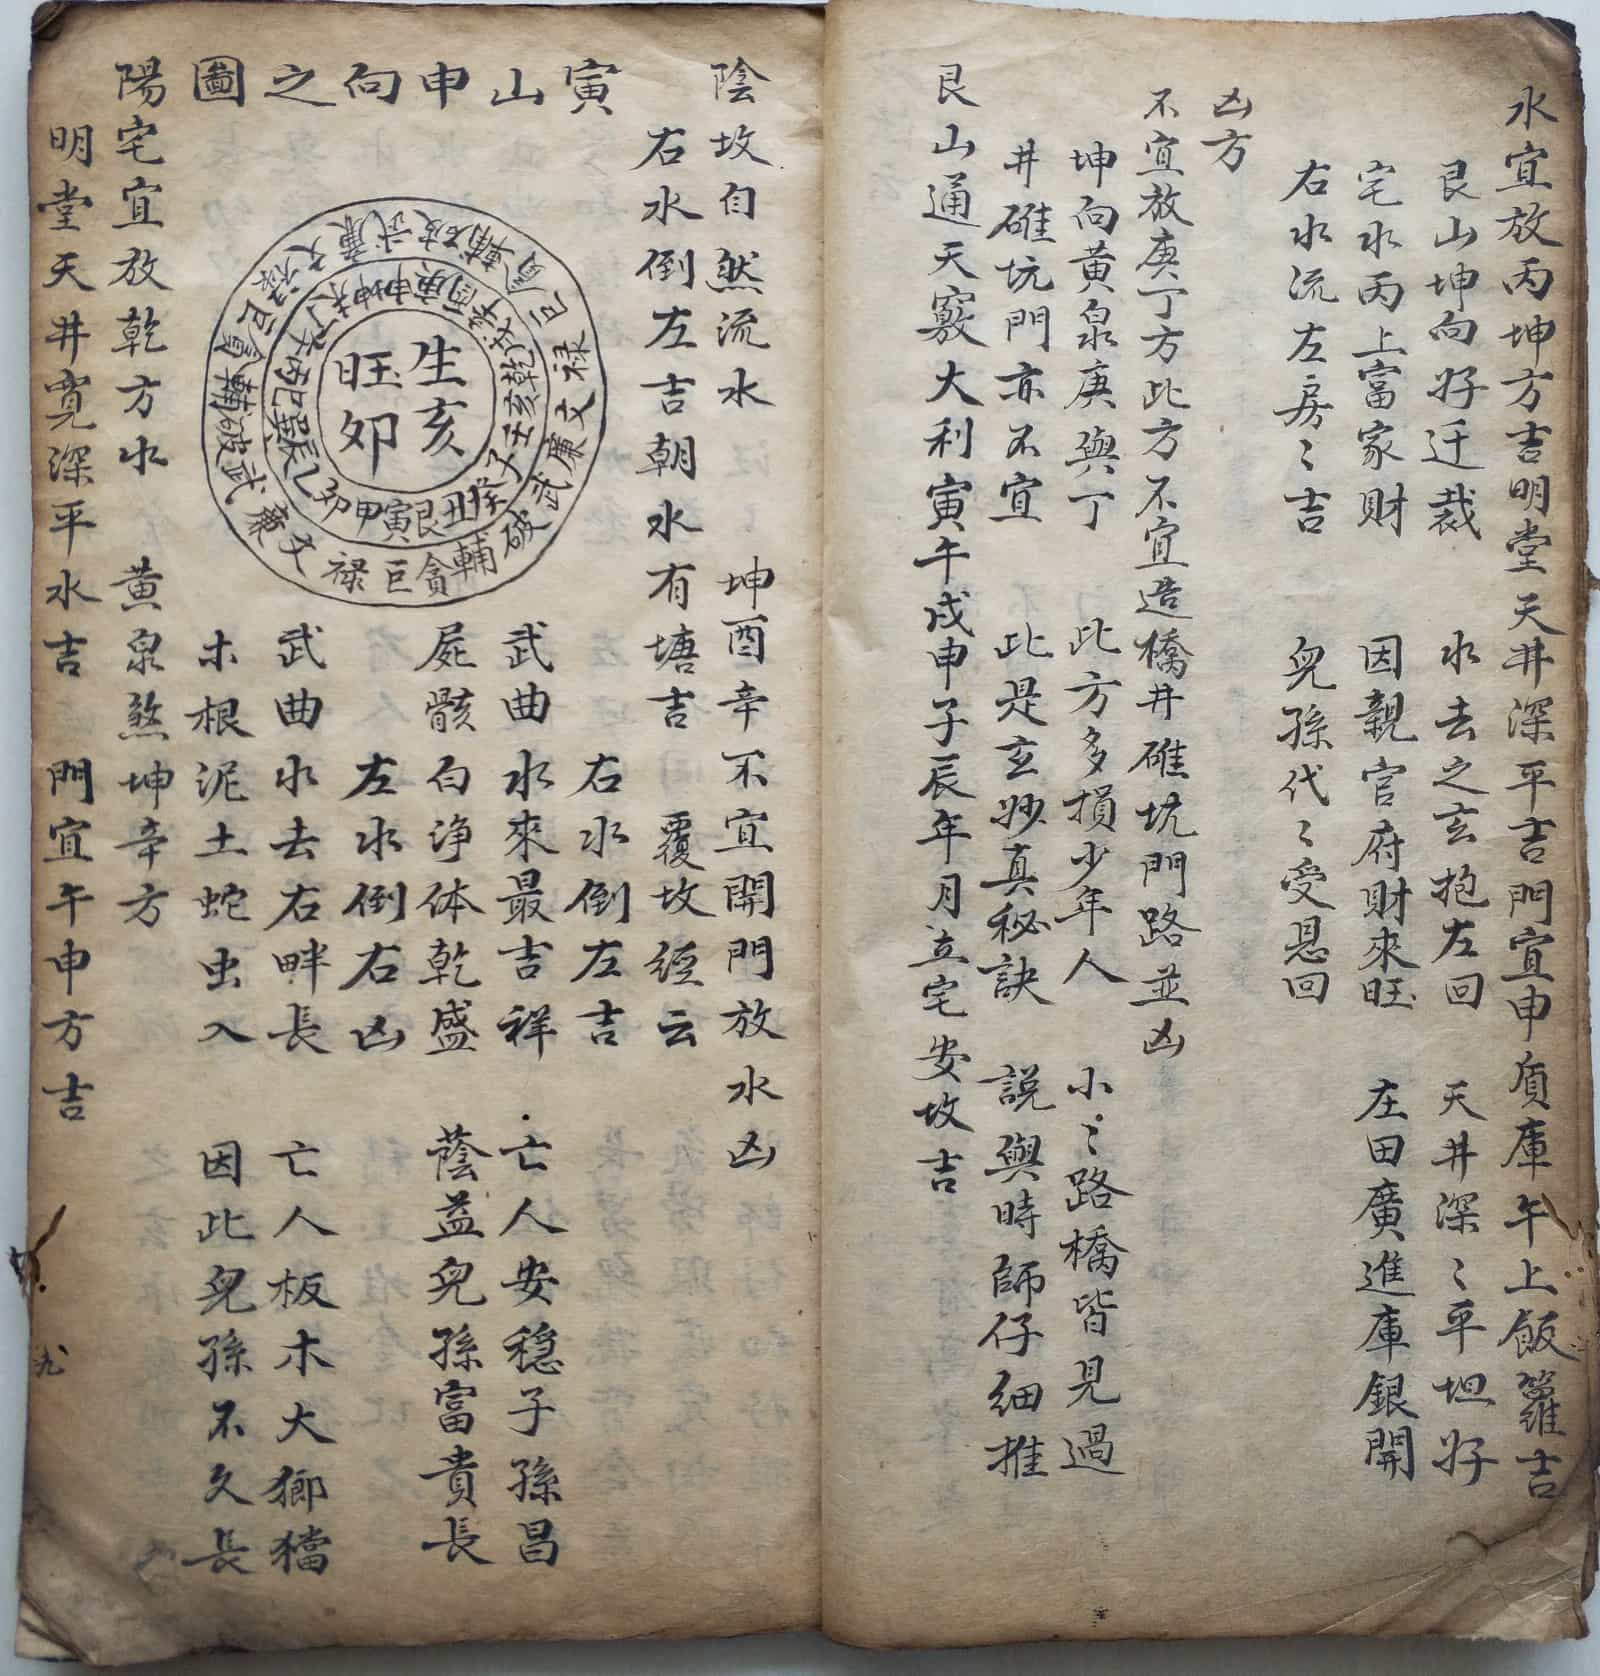 水宜放丙坤方吉明堂天井深平吉門宜申庚庫午上飯籮吉
艮山坤向好迁裁　水去之玄抱左回　天井深〻平坦好
宅水丙上富家財　因親官府財來旺　庄田廣進庫銀開
右水流左房〻吉　兒孫代〻受恩回
凶方
不宜放庚丁方此方不宜造橋井碓坑門路並凶
坤向黃泉庚與丁　此方多損少年人　小〻路橋皆見過
井碓坑門亦不宜　此是玄妙真秘訣　説與時師仔细推
艮山通天竅大利寅午戍申子辰年月立宅安坟吉
陰坟自然流水　坤酉辛不宜開門放水凶
右水倒左吉朝水有塘吉　覆坟經云
寅山申向之圖
右水倒左吉
武曲水來最吉祥　亡人安穏子孫昌
屍骸白净体乾盛　蔭益兒孫富貴長
左水倒右凶
武曲水去右畔長　亡人板木大鄉檔
木根泥土蛇虫入　因此兒孫不久長
生亥
旺卯
艮寅甲卯乙辰巽巳丙午丁未坤申庚酉辛戍乾亥壬子癸丑
貪巨禄文廉武破輔貪巨禄文廉武破輔貪巨禄文廉武破輔
陽宅宜放乾方水　黃泉煞坤辛方
明堂天井寬深平水吉　門宜午申方吉
九